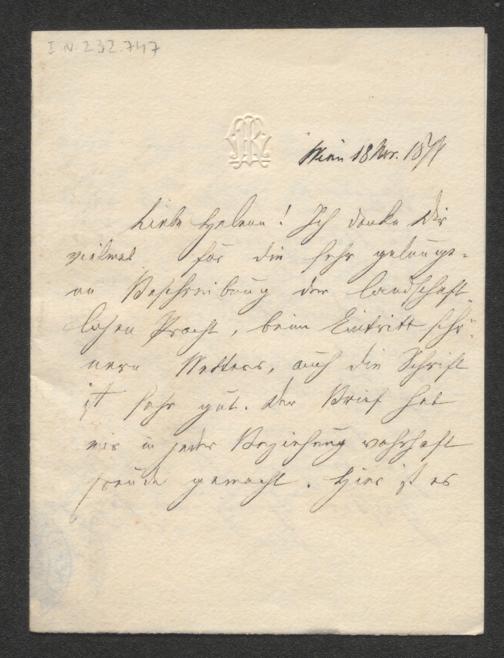 I.N. 232.747
Wien 18 Nov. 1871
Liebe Helene! Ich danke Dir
vielmal für die sehr gelunge-
ne Beschreibung der landschaft-
lichen Pracht, beim Eintritt schö-
nern Wetters, auch die Schrift
ist sehr gut. Der Brief hat
mir in jeder Beziehung wahrhaft
Freude gemacht. Hier ist es